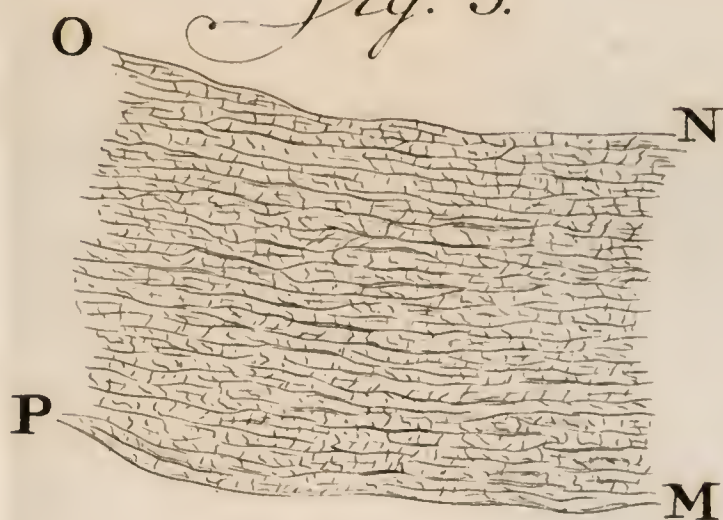 Fig. 5.
O
N
P
M